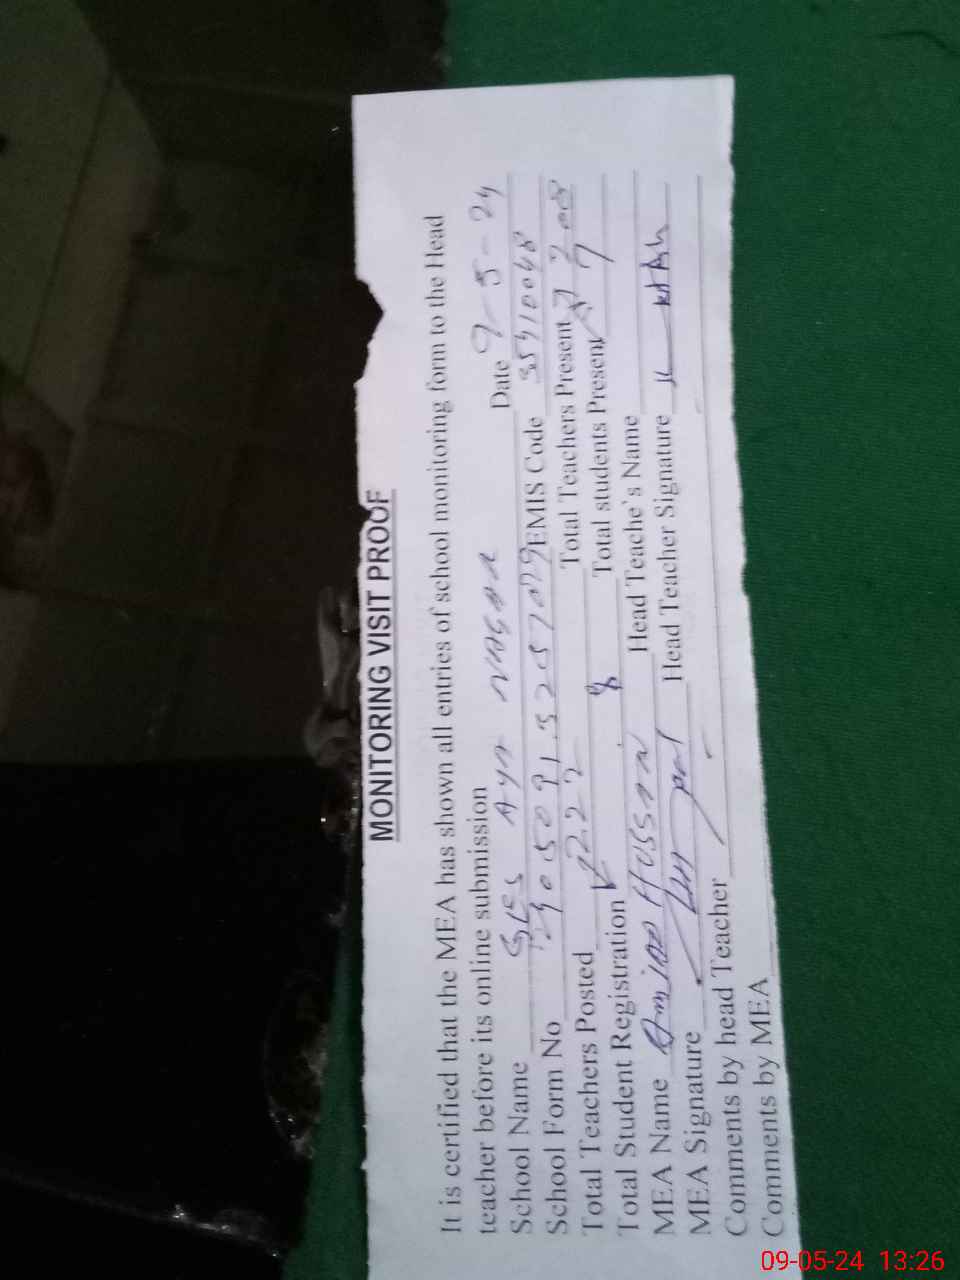 MONITORING VISIT PROOF
It is certified that the MEA has shown all entries of school monitoring form to the Head
teacher before its online submission
School Name GES Date 9-5-24
School Form No EMIS Code 35910048
Total Teachers Posted 222 Total Teachers Present 208
Total Student Registration 8 Total students Present 7
MEA Name Hussan Head Teache`s Name
MEA Signature Head Teacher Signature
Comments by head Teacher
Comments by MEA
09-05-24 13:26